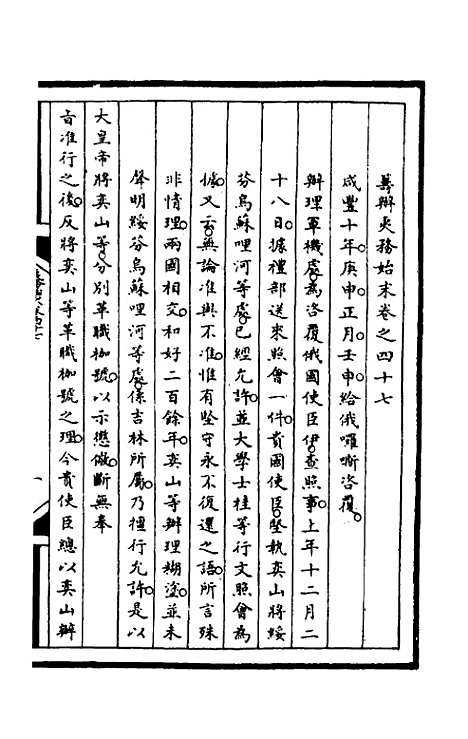 籌辦夷務始末卷之四十七
咸豐十年庚申正月壬申給俄囉嘶咨覆。
辦理軍機處。爲咨覆俄國使臣伊。查照事。上年十二月二
十八日。據禮部送來照會一件。貴國使臣。堅執奕山將綏
芬烏蘇哩河等處。已經允許。並大學士桂等行文照會爲
憑。又云。無論准與不准。惟有堅守永不復還之語。所言殊
非情理。兩國相交。和好二百餘年。奕山等辦理糊塗。並未
聲明綏芬烏蘇哩河等處。係吉林所屬。乃擅行允許。是以
大皇帝將奕山等。分別革職枷號。以示懲儆。斷無奉
旨准行之後。反將奕山等革職枷號之理。今貴使臣總以奕山辦